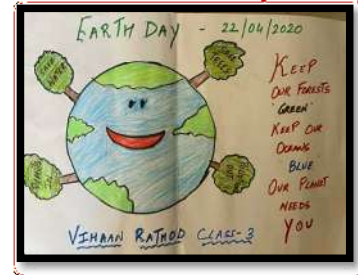 EARTH DAY - 22/04/2020
KEEP
OUR FORESTS
'GREEN'
KEEP OUR
OCEANS
BLUE
OUR PLANET
NEEDS
YOU
VIHAAN RATHOD CLASS-3